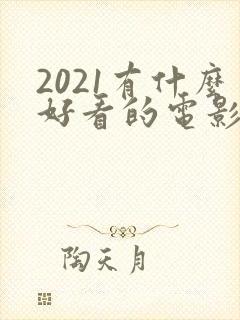 2021有什麼
好看的電影
陶天月